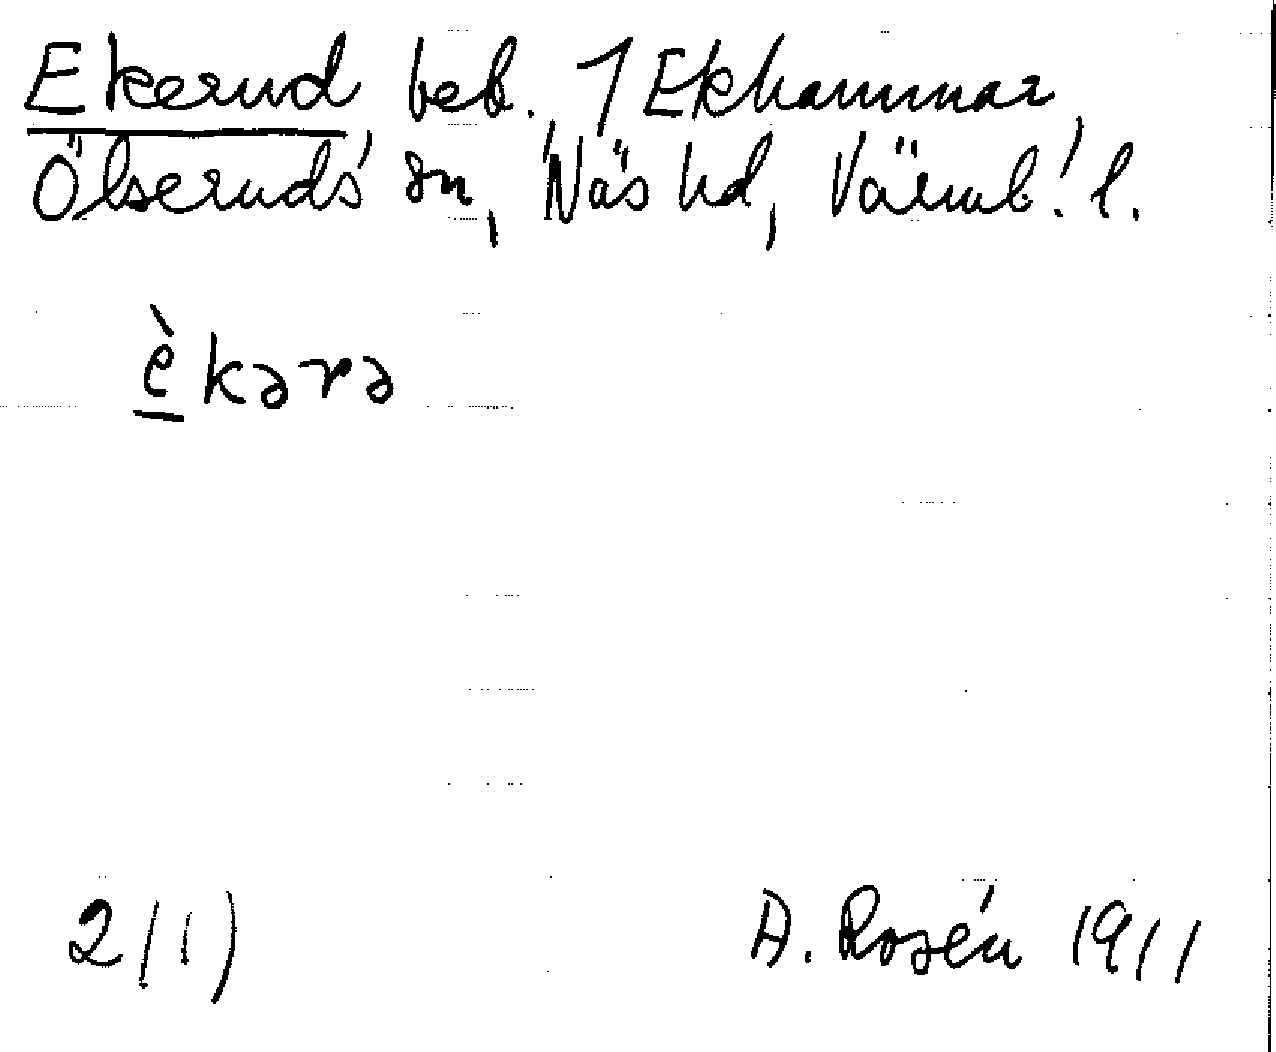 Ekerud beb. 1 Ekhammar,
Ölseruds sn, Näs hd, Värml. l.
èkərə
2/1)
A. Rosén 1911